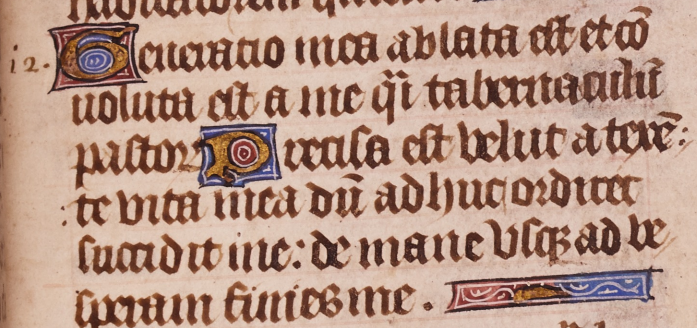 habitatorem quietis
12. Generatio mea ablata est et cō
uoluta est a me q̄i tabernaculū
pastorꝝ Precisa est velut a texē:
te vita mea dū adhuc ordirer
succidit me: de mane vsqꝫ ad ve
speram finies me.